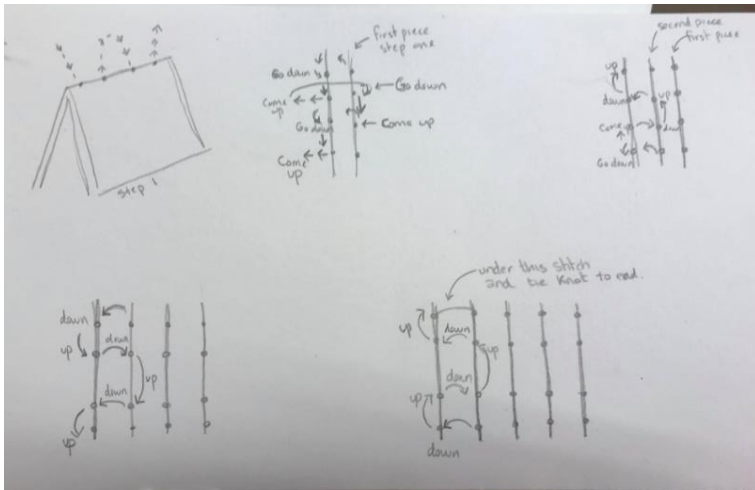 step 1
first piece
step one
Go down
Go down
Come
up
Go down
Come up
Come
up
second piece
first piece
up
down
up
Come
down
Go down
down
up
down
up
down
up
under this stitch
and tie knot to end.
up
down
up
down
up
down